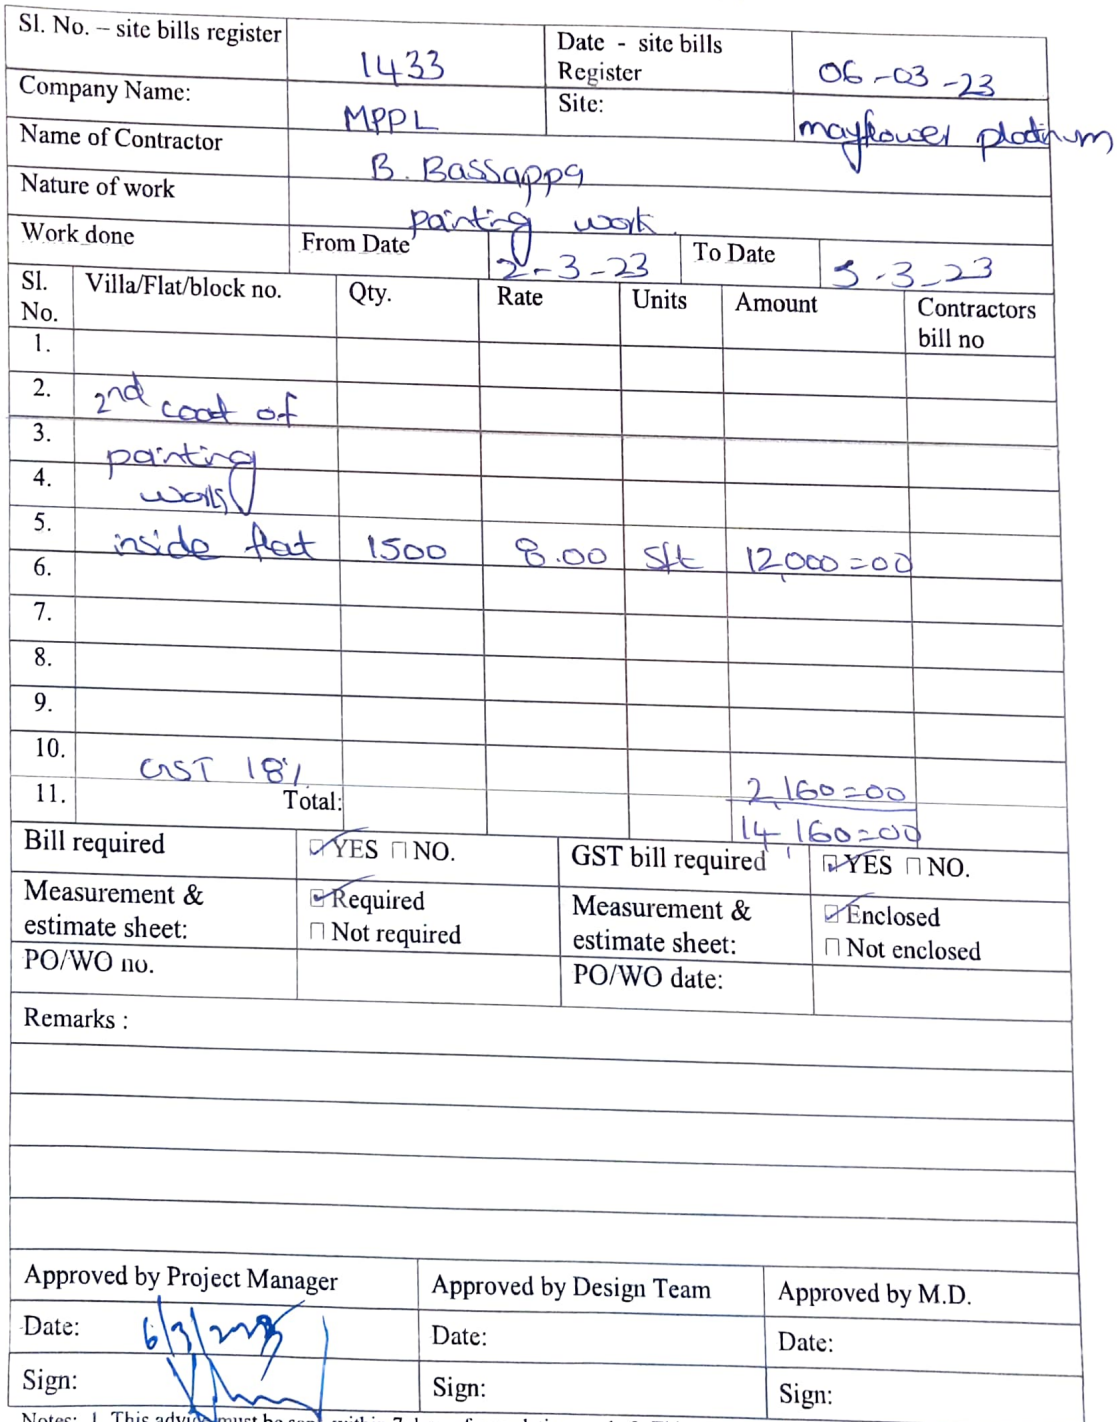 Sl. No. – site bills register 1433 Date - site bills Register 06-03-23
Company Name: MPPL Site: mayflower platinum
Name of Contractor B. Bassappa
Nature of work painting work.
Work done From Date 2-3-23 To Date 5-3-23
Sl. No. Villa/Flat/block no. Qty. Rate Units Amount Contractors bill no
1.
2. 2nd coat of
3. painting
4. work
5. inside flat 1500 8.00 sft 12,000=00
6.
7.
8.
9.
10. GST 18% 2,160=00
11. Total: 14,160=00
Bill required YES NO. GST bill required YES NO.
Measurement & estimate sheet: Required Not required Measurement & estimate sheet: Enclosed Not enclosed
PO/WO no. PO/WO date:
Remarks :
Approved by Project Manager Approved by Design Team Approved by M.D.
Date: 6/3/2023 Date: Date:
Sign: Sign: Sign:
Notes: 1. This